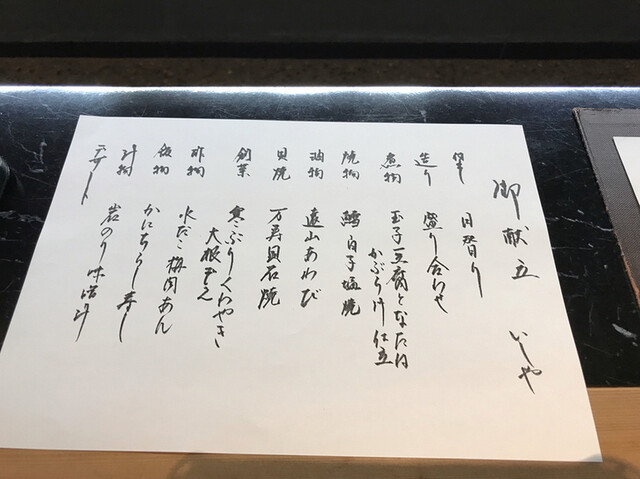 御献立 いしや
日替り
造り 盛り合わせ
煮物 玉子豆腐となたね
かぶら汁仕立
焼物 鱈白子塩焼
油物 遠山あわび
貝焼 万寿貝石焼
創菜 寒ぶりくわやき
大根
酢物 水だこ梅肉あん
飯物 かにちらし寿し
汁物 岩のり味噌汁
デザート